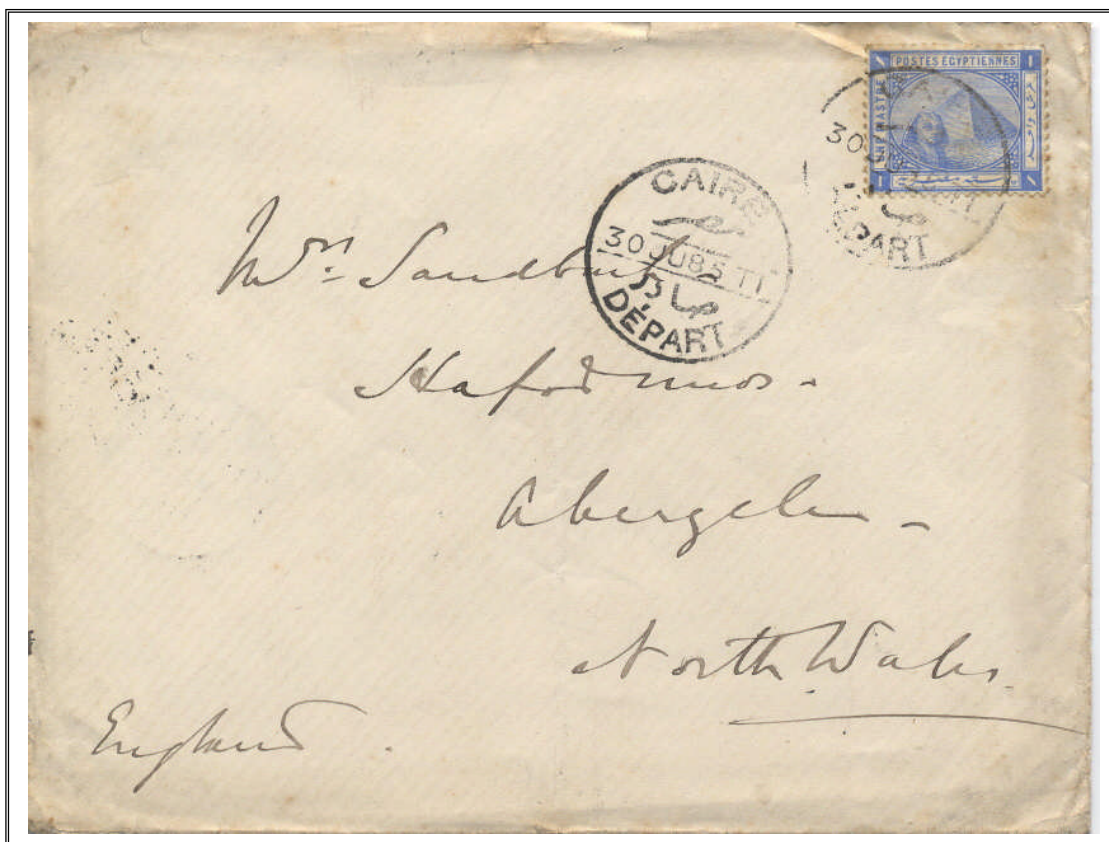 POSTES EGYPTIENNES
UNE PIASTRE
30
DÉPART
CAIRE
30 JU 85 T1
صادر
DÉPART
Mrs. Sandbach
Hafodunos.
Abergele
North Wales.
England.